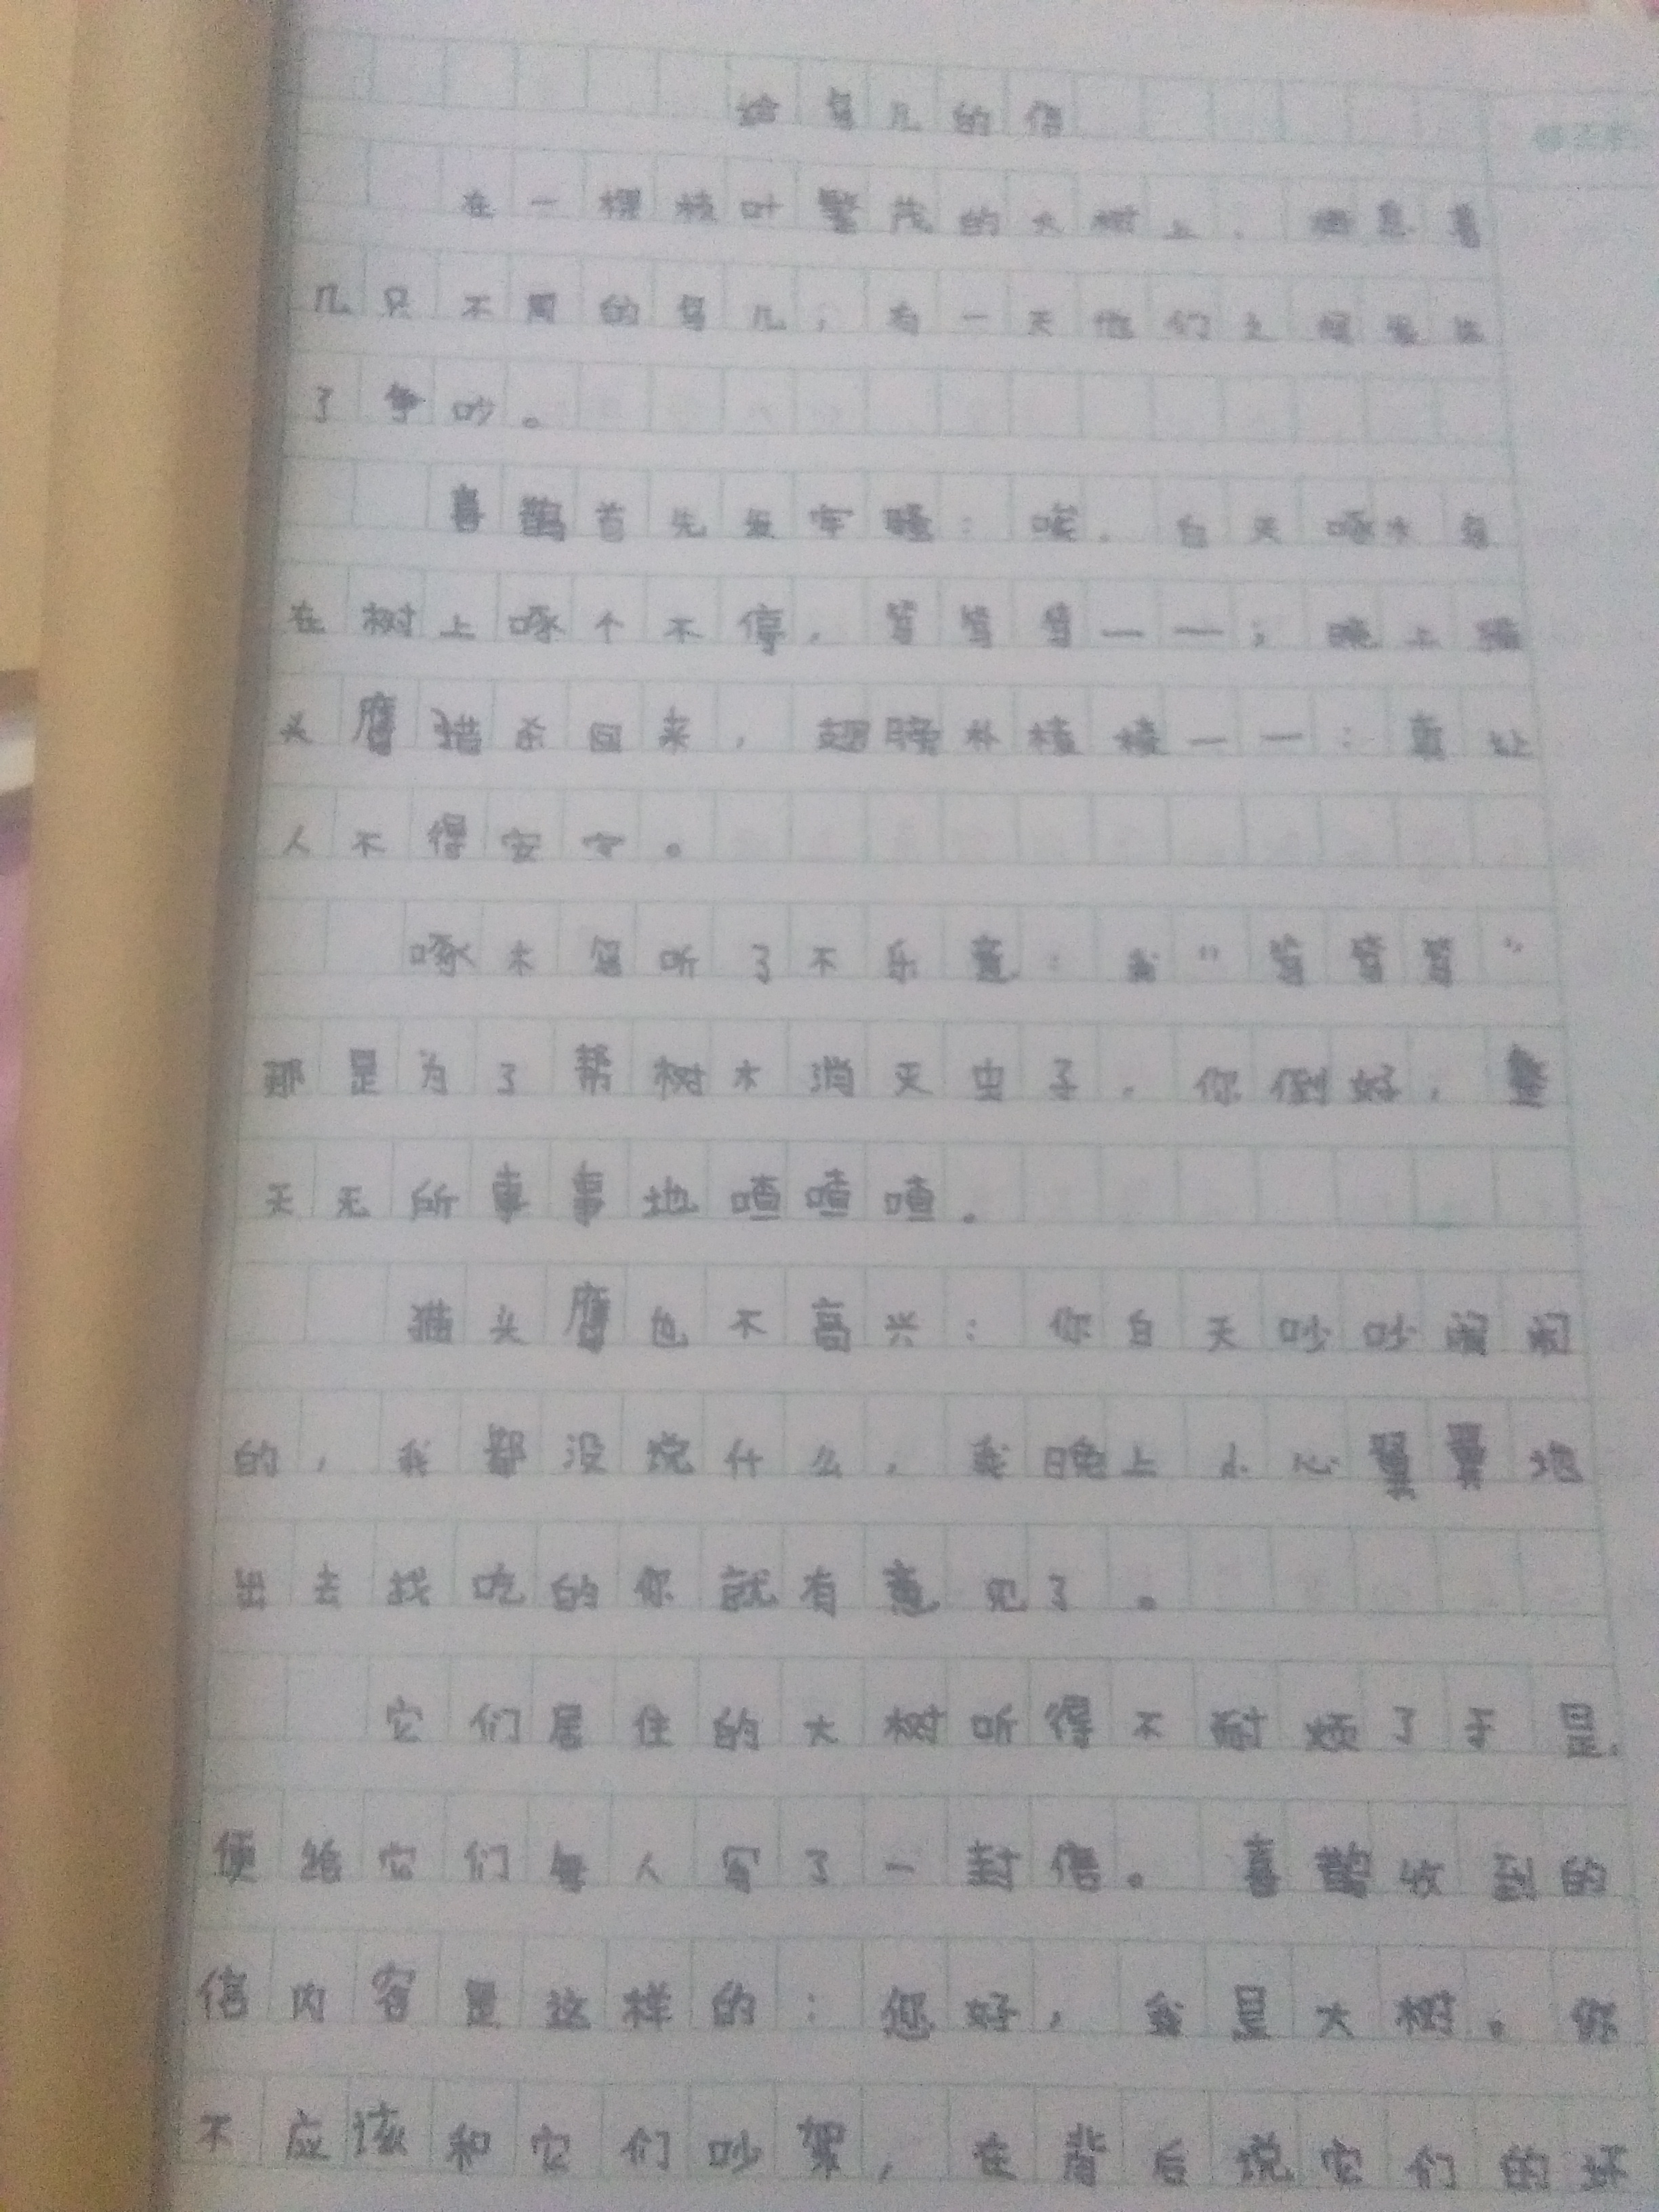 给鸟儿的信
在一棵枝叶繁茂的大树上，栖息着
几只不同的鸟儿，有一天他们之间发生
了争吵。
喜鹊首先发牢骚：唉，白天啄木鸟
在树上啄个不停，笃笃笃——；晚上猫
头鹰猎杀回来，翅膀扑棱棱——：真让
人不得安宁。
啄木鸟听了不乐意：我“笃笃笃”
那是为了帮树木消灭虫子，你倒好，整
天无所事事地喳喳喳。
猫头鹰也不高兴：你白天吵吵闹闹
的，我都没说什么，我晚上小心翼翼地
出去找吃的你就有意见了。
它们居住的大树听得不耐烦了于是，
便给它们每人写了一封信。喜鹊收到的
信内容是这样的：您好，我是大树。你
不应该和它们吵架，在背后说它们的坏